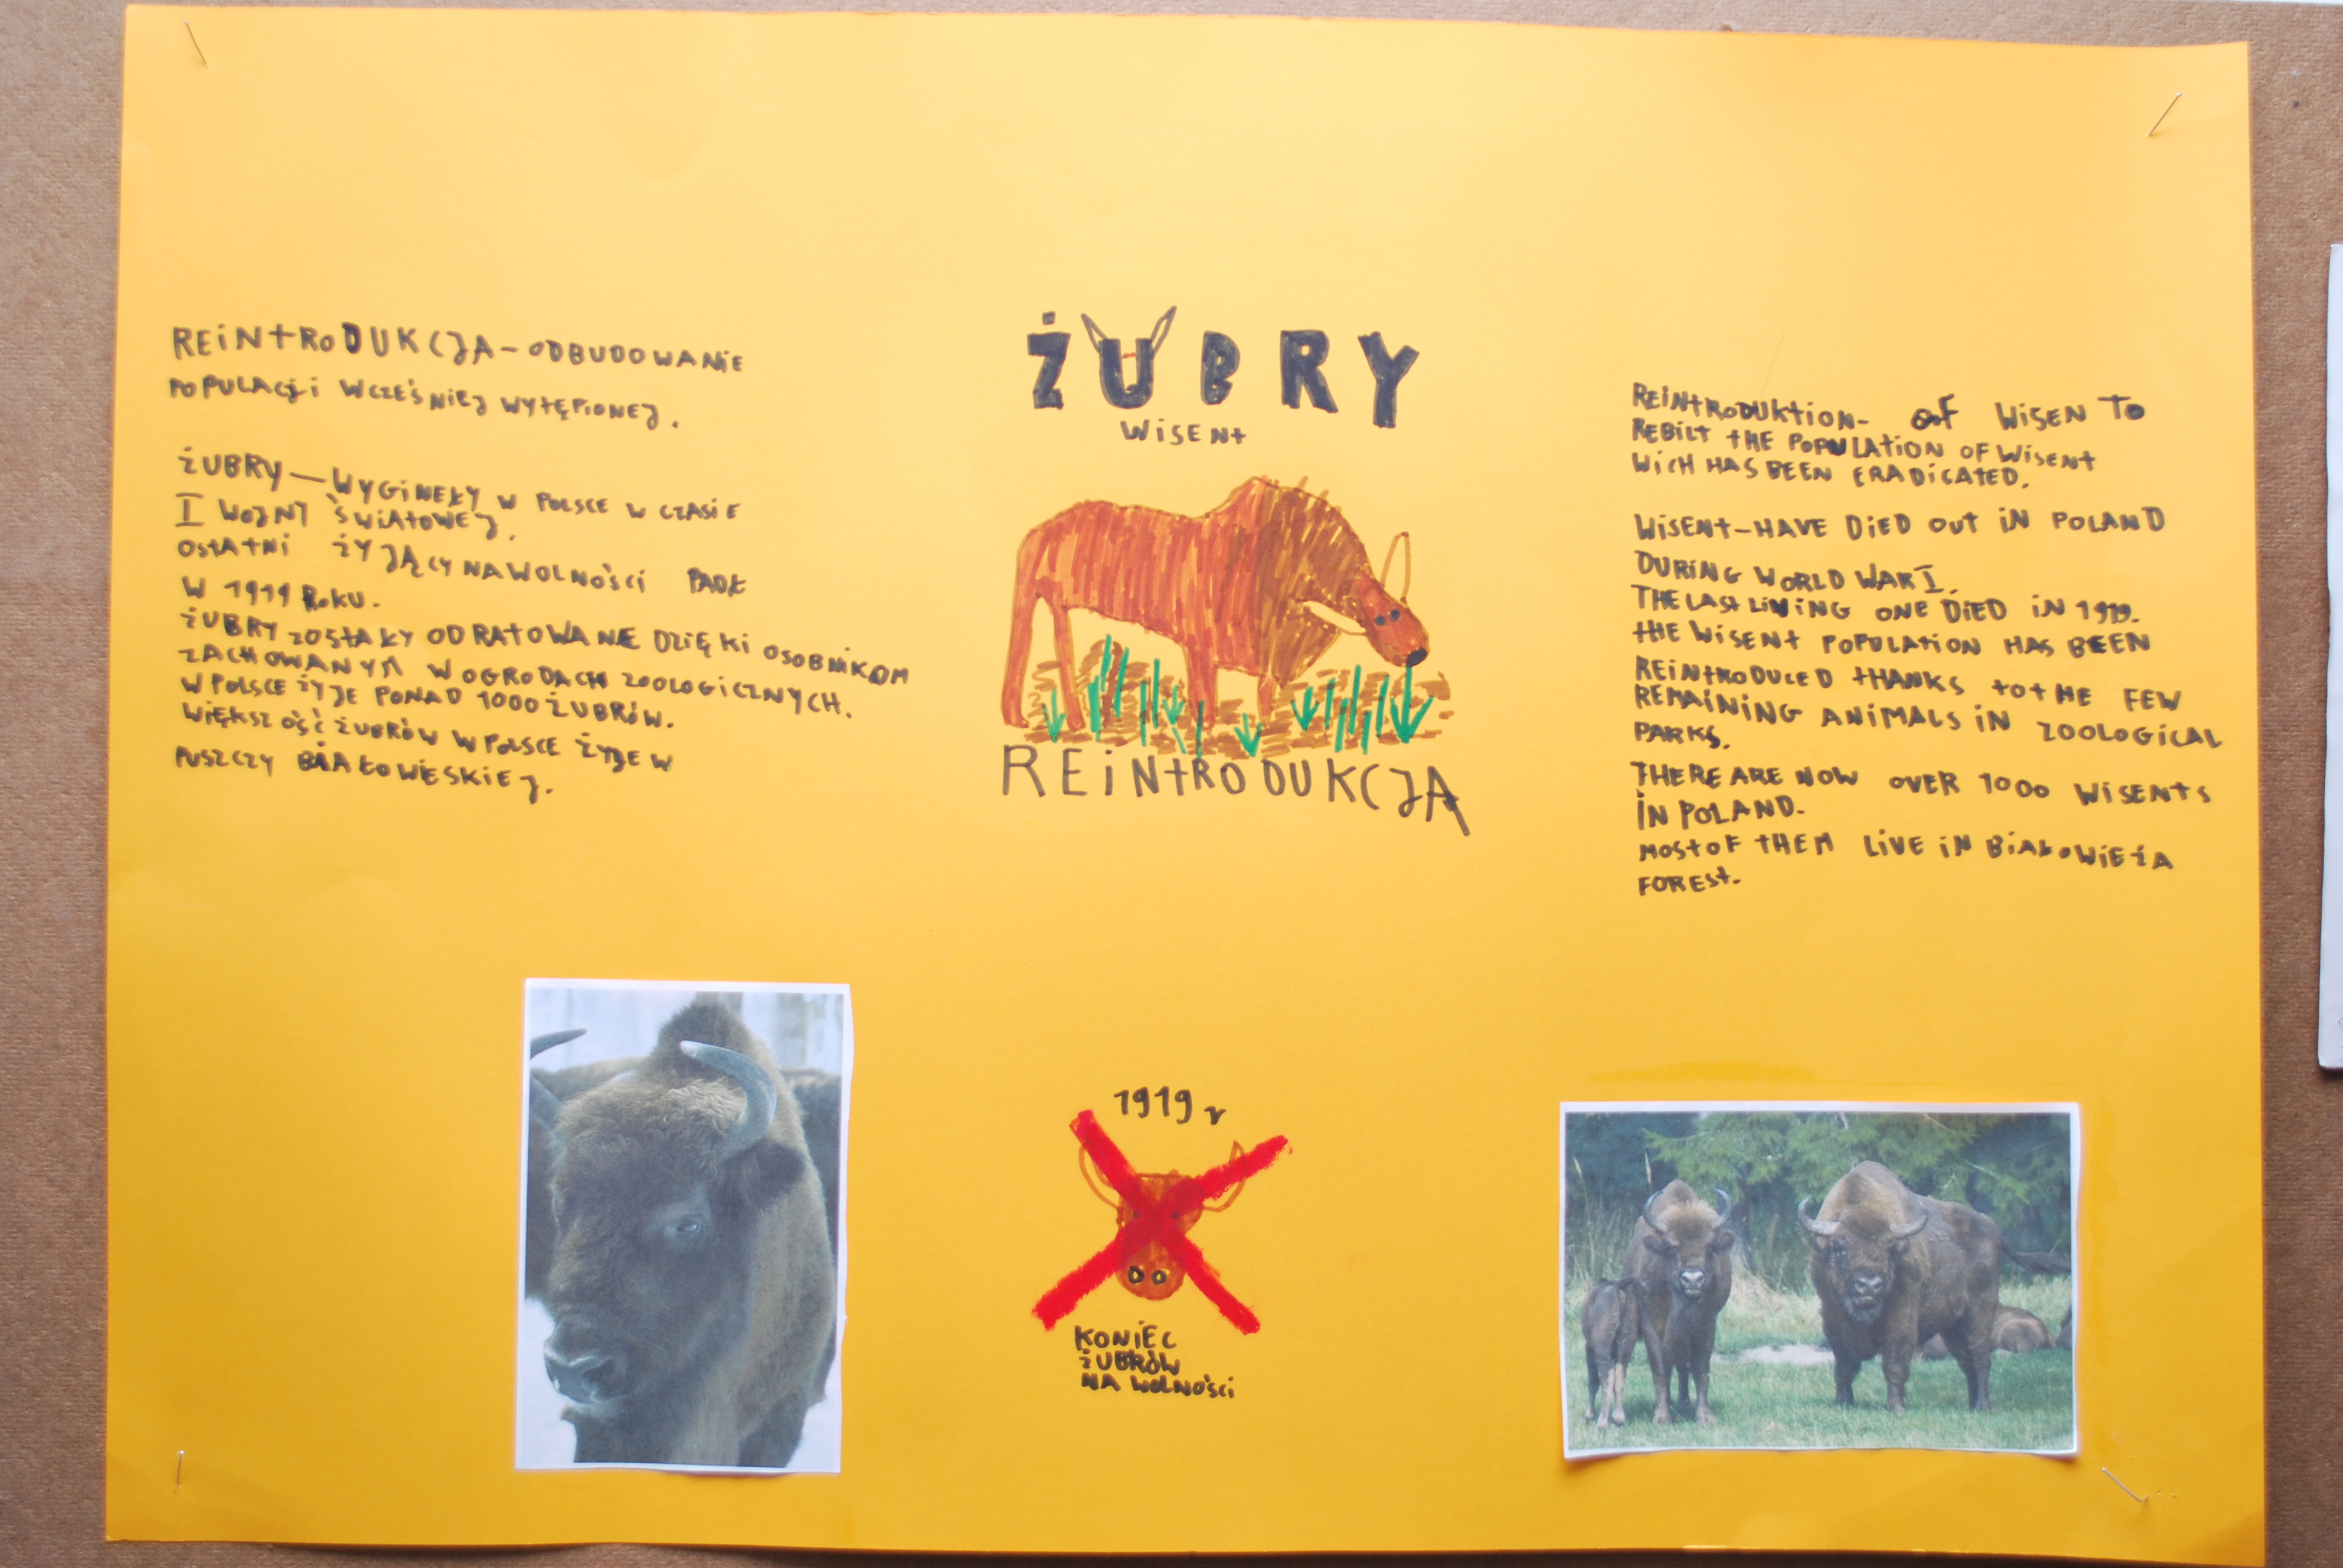 REINTRODUKCJA - ODBUDOWANIE
POPULACJI WCZEŚNIEJ WYTĘPIONEJ.
ŻUBRY - WYGINEŁY W POLSCE W CZASIE
I WOJNY ŚWIATOWEJ.
OSTATNI ŻYJĄCY NA WOLNOŚCI PADŁ
W 1919 ROKU.
ŻUBRY ZOSTAŁY ODRATOWANE DZIĘKI OSOBNIKOM
ZACHOWANYM W OGRODACH ZOOLOGICZNYCH.
W POLSCE ŻYJE PONAD 1000 ŻUBRÓW.
WIĘKSZOŚĆ ŻUBRÓW W POLSCE ŻYJE W
PUSZCZY BIAŁOWIESKIEJ.
ŻUBRY
WISENT
REINTRODUKCJA
REINTRODUKTION - OF WISEN TO
REBILT THE POPULATION OF WISENT
WICH HAS BEEN ERADICATED.
WISENT - HAVE DIED OUT IN POLAND
DURING WORLD WAR I.
THE LAST LIVING ONE DIED IN 1919.
THE WISENT POPULATION HAS BEEN
REINTRODUCED THANKS TO THE FEW
REMAINING ANIMALS IN ZOOLOGICAL
PARKS.
THERE ARE NOW OVER 1000 WISENTS
IN POLAND.
MOST OF THEM LIVE IN BIAŁOWIEŻA
FOREST.
1919 r
KONIEC
ŻUBRÓW
NA WOLNOŚCI